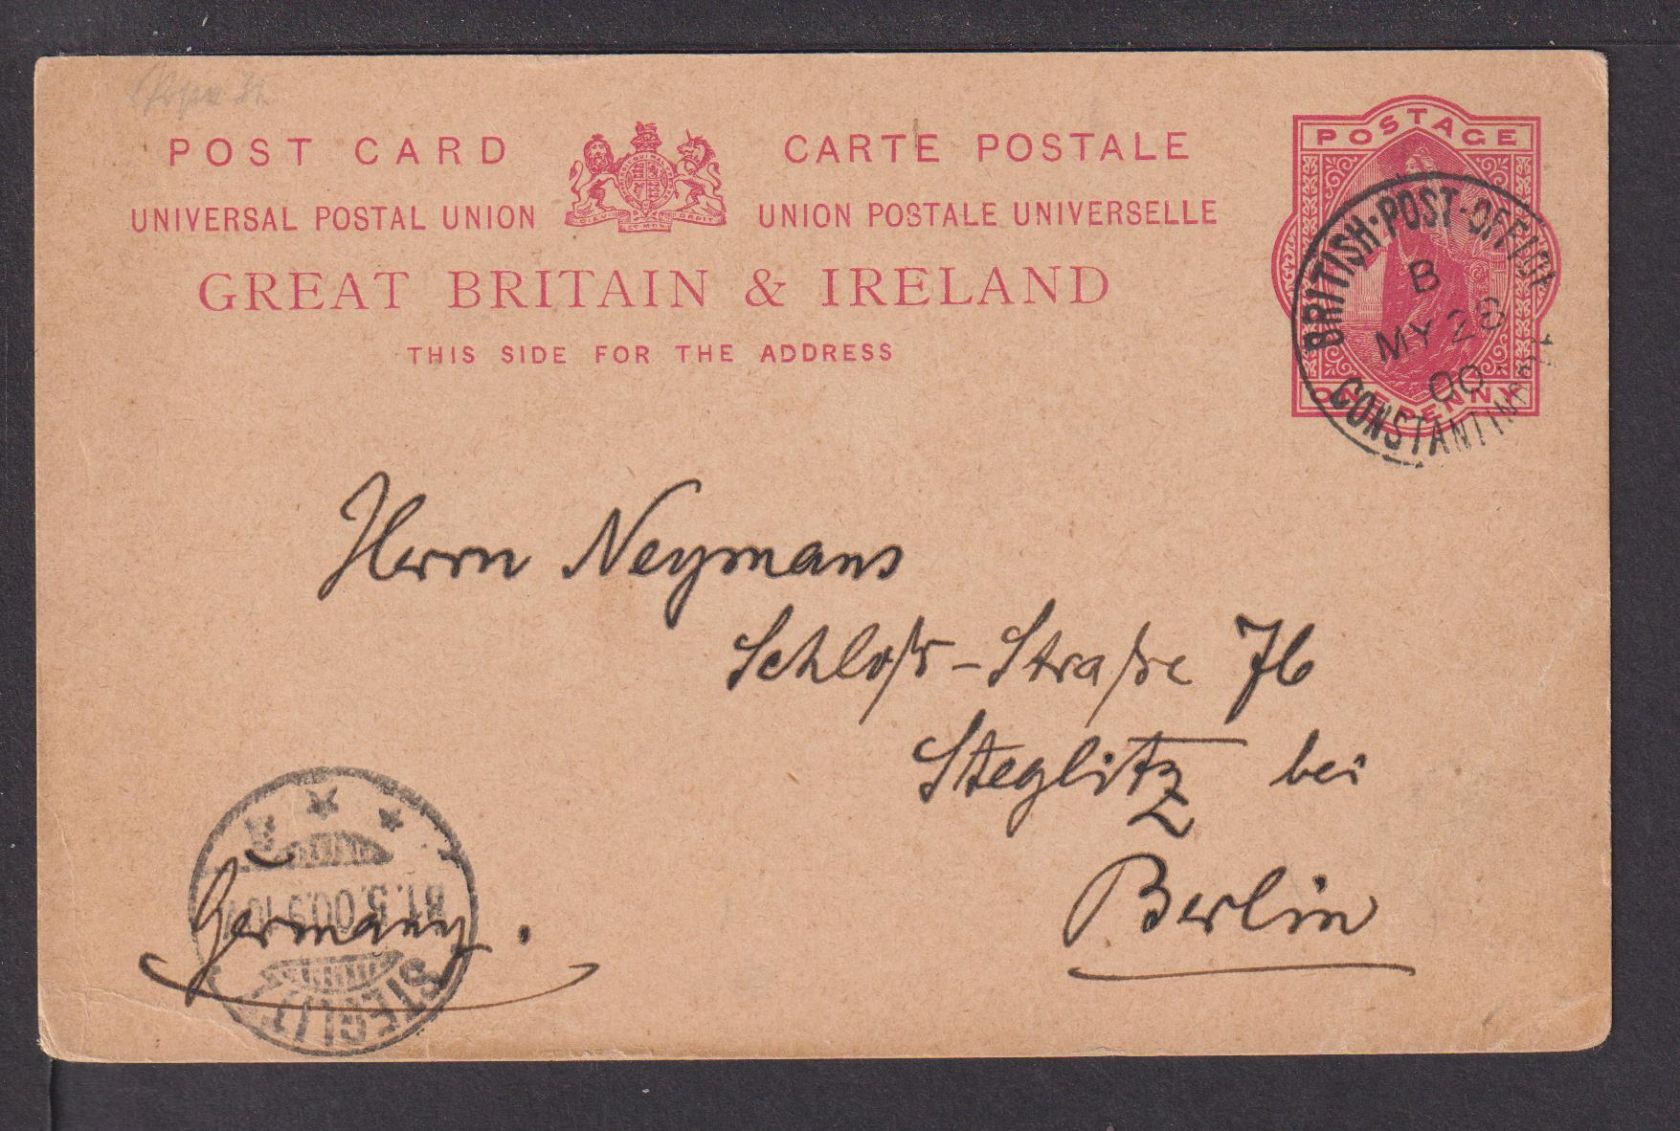 POST CARD CARTE POSTALE
UNIVERSAL POSTAL UNION UNION POSTALE UNIVERSELLE
GREAT BRITAIN & IRELAND
THIS SIDE FOR THE ADDRESS
POSTAGE
ONE PENNY
BRITISH·POST·OFFICE
B
MY 28
00
CONSTANTINOPLE
Herrn Neymans
Schloß-Straße 76
Steglitz bei
Berlin
Germany.
31.5.00.9-10V
STEGLITZ